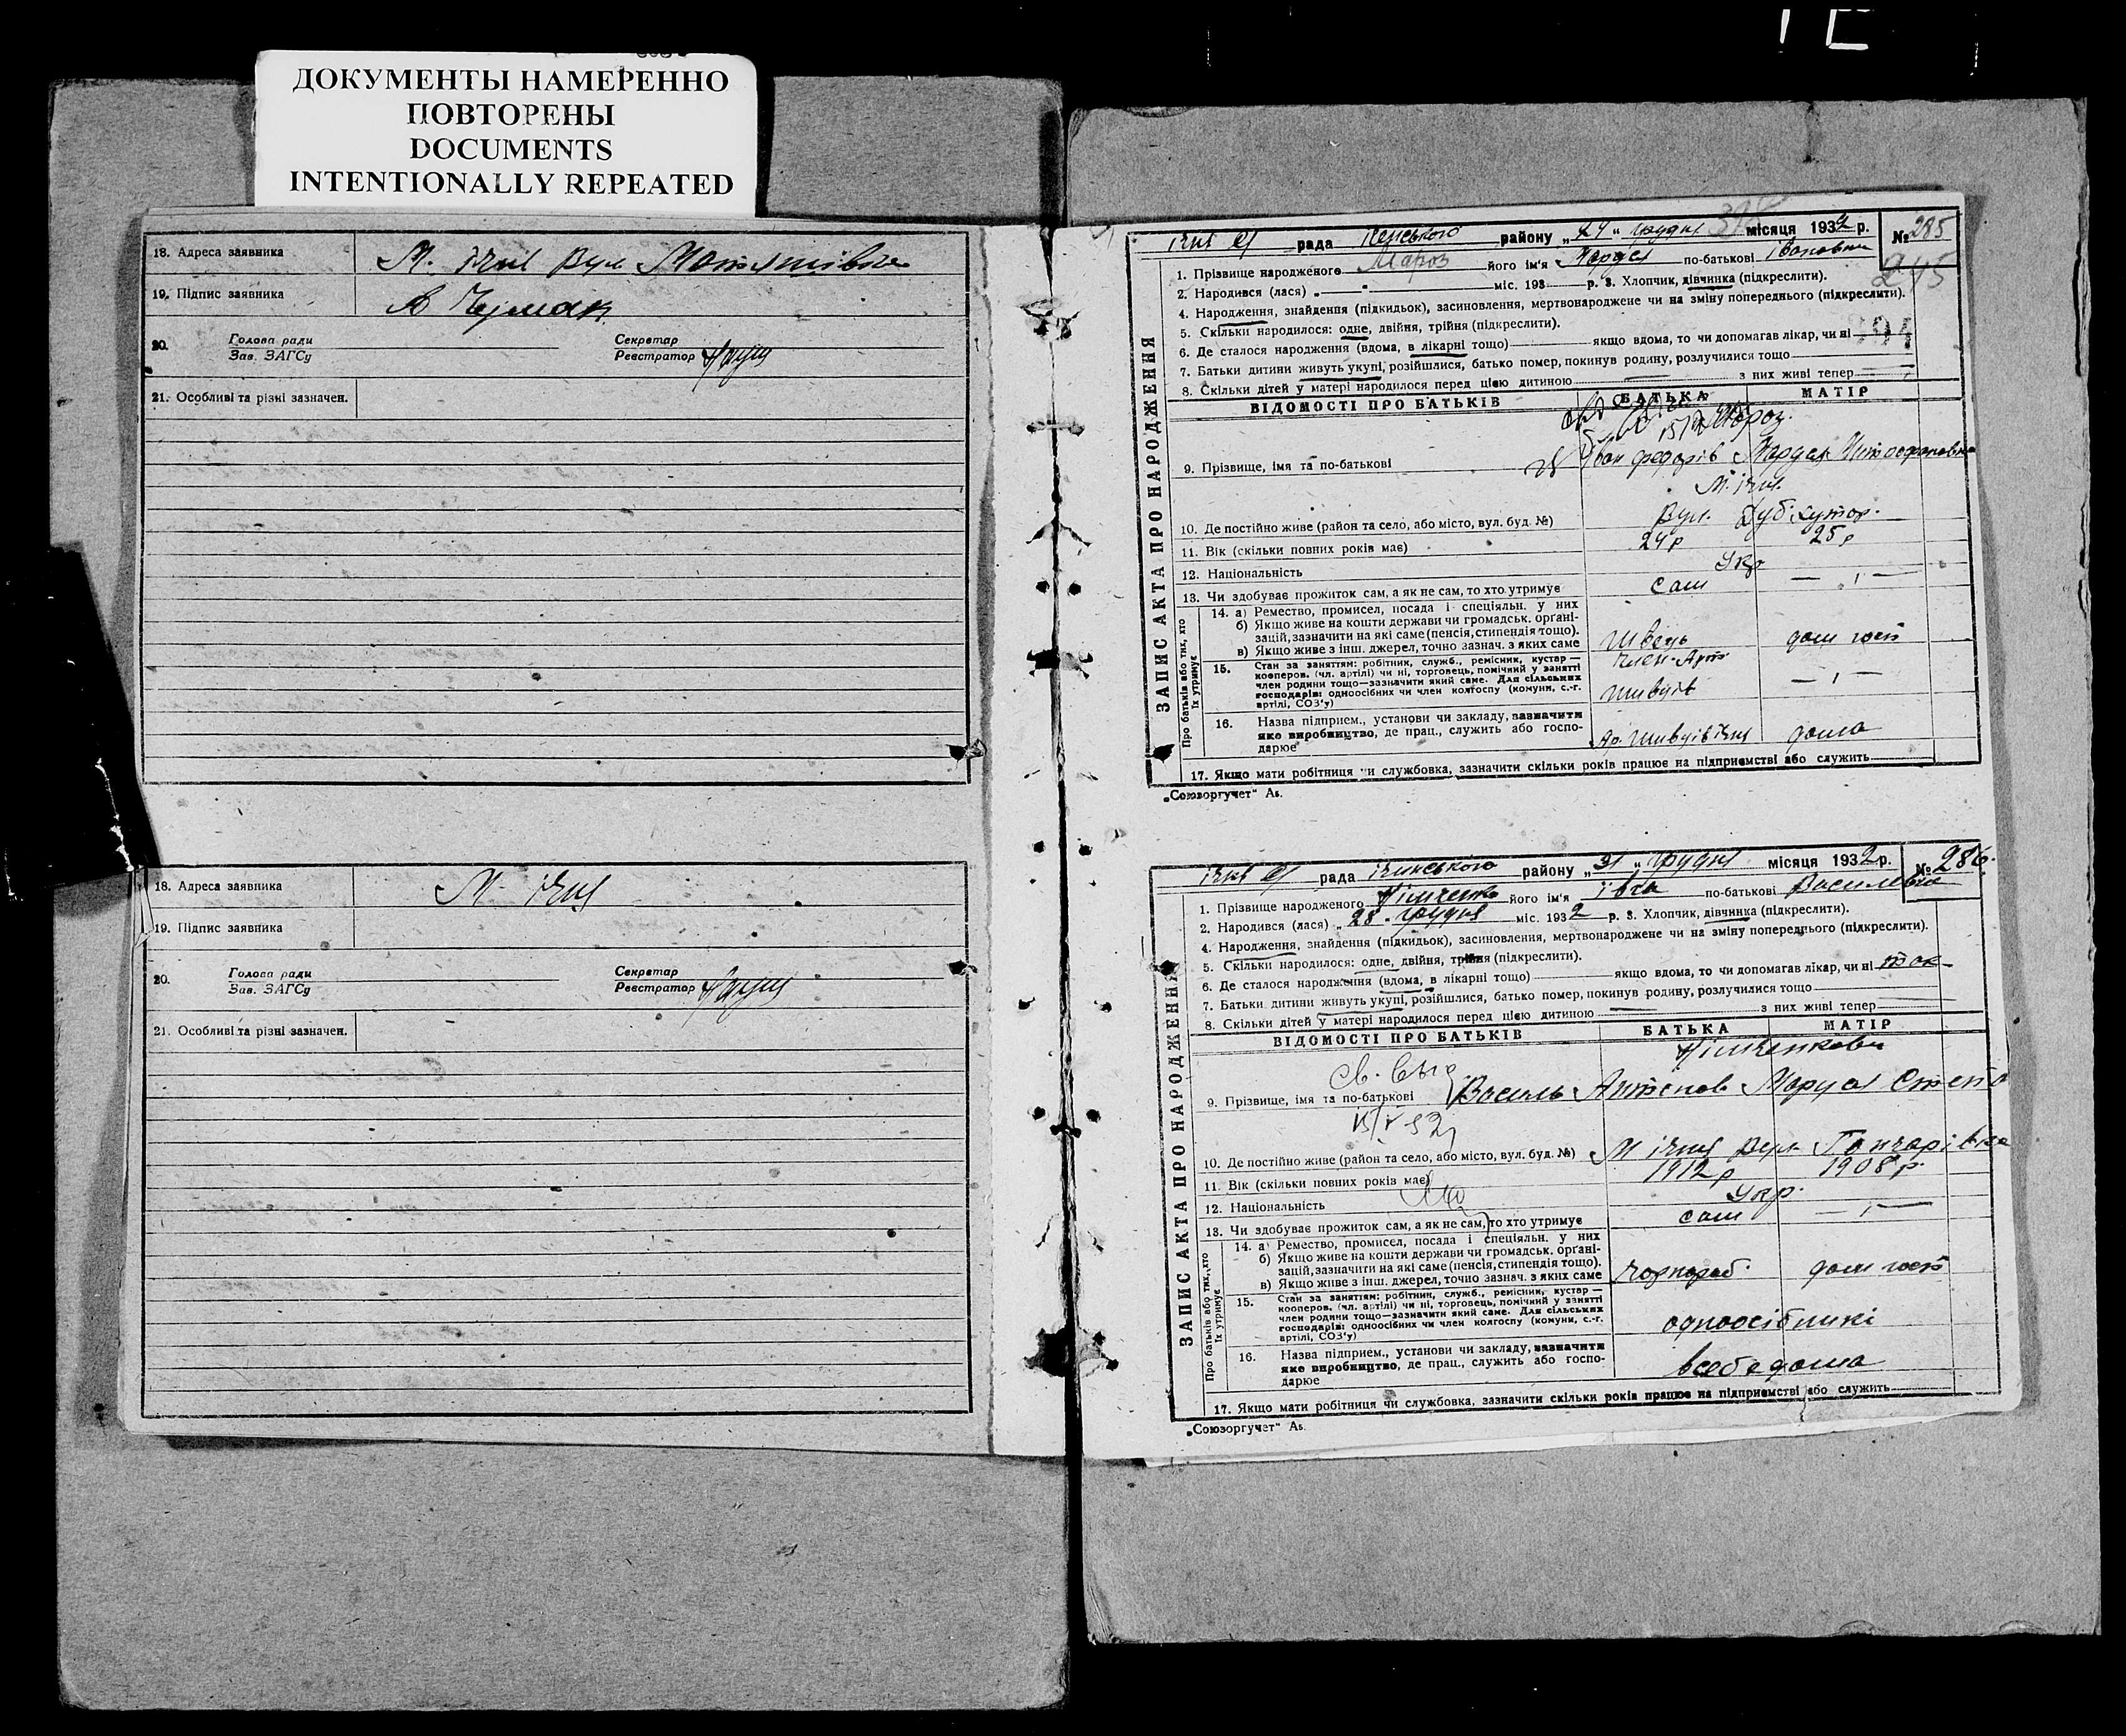 ДОКУМЕНТЫ НАМЕРЕННО
ПОВТОРЕНЫ
DOCUMENTS
INTENTIONALLY REPEATED
18. Адреса заявника М. Ічня Вул
19. Підпис заявника
20. Голова ради Секретар
Зав. ЗАГСу Реєстратор
21. Особливі та різні зазначен.
18. Адреса заявника М. Ічня
19. Підпис заявника
20. Голова ради Секретар
Зав. ЗАГСу Реєстратор
21. Особливі та різні зазначен.
рада району „24“ грудня місяця 1932 р. № 285
1. Прізвище народженого Мороз його ім'я Маруся по-батькові Івановна
245
2. Народився (лася) „ “ міс. 193 р. 3. Хлопчик, дівчинка (підкреслити).
4. Народження, знайдення (підкидьок), засиновлення, мертвонароджене чи на зміну попереднього (підкреслити).
5. Скільки народилося: одне, двійня, трійня (підкреслити).
6. Де сталося народження (вдома, в лікарні тощо) якщо вдома, то чи допомагав лікар, чи ні
7. Батьки дитини живуть укупі, розійшлися, батько помер, покинув родину, розлучилися тощо
8. Скільки дітей у матері народилося перед цією дитиною — з них живі тепер —
ВІДОМОСТІ ПРО БАТЬКІВ БАТЬКА МАТІР
Мороз.
9. Прізвище, імя та по-батькові Іван Федорів Маруся Митрофановна
М. Ічня.
10. Де постійно живе (район та село, або місто, вул. буд. №) Вул. Дуб. хутор.
11. Вік (скільки повних років має) 24 р 25 р
12. Національність Укр
13. Чи здобуває прожиток сам, а як не сам, то хто утримує сам — „ —
14. а) Ремество, промисел, посада і спеціяльн. у них
б) Якщо живе на кошти держави чи громадськ. органі-
зацій, зазначити на які саме (пенсія, стипендія тощо).
в) Якщо живе з інш. джерел, точно зазнач. з яких саме Швець дом госп
15. Стан за заняттям: робітник, служб., ремісник, кустар— Член. Арт
кооперов. (чл. артілі) чи ні, торговець, помічний у занятті
член родини тощо—зазначити який саме. Для сільських
господарів: одноосібних чи член колгоспу (комуни, с.-г. Шивців — „ —
артілі, СОЗ'у)
16. Назва підприєм., установи чи закладу, зазначити
яке виробництво, де прац., служить або госпо-
дарює Ар. Шивців Ічня дома
17. Якщо мати робітниця чи службовка, зазначити скільки років працює на підприємстві або служить
ЗАПИС АКТА ПРО НАРОДЖЕННЯ
Про батьків або тих, хто
їх утримує
„Союзоргучет“ Аs.
рада Ічнянського району „31“ грудня місяця 1932 р. № 286.
1. Прізвище народженого Німченко його ім'я Івга по-батькові Василівна
2. Народився (лася) „ 28 “ грудня міс. 1932 р. 3. Хлопчик, дівчинка (підкреслити).
4. Народження, знайдення (підкидьок), засиновлення, мертвонароджене чи на зміну попереднього (підкреслити).
5. Скільки народилося: одне, двійня, трійня (підкреслити).
6. Де сталося народження (вдома, в лікарні тощо) якщо вдома, то чи допомагав лікар, чи ні так
7. Батьки дитини живуть укупі, розійшлися, батько помер, покинув родину, розлучилися тощо
8. Скільки дітей у матері народилося перед цією дитиною — з них живі тепер
ВІДОМОСТІ ПРО БАТЬКІВ БАТЬКА МАТІР
Німченкови
9. Прізвище, імя та по-батькові Василь Антонов Маруся Степа
10. Де постійно живе (район та село, або місто, вул. буд. №) М Ічня Вул. Гончарівка
11. Вік (скільки повних років має) 1912 р 1908 р.
12. Національність Укр.
13. Чи здобуває прожиток сам, а як не сам, то хто утримує сам — „ —
14. а) Ремество, промисел, посада і спеціяльн. у них
б) Якщо живе на кошти держави чи громадськ. органі-
зацій, зазначити на які саме (пенсія, стипендія тощо).
в) Якщо живе з інш. джерел, точно зазнач. з яких саме чорнороб. дом госп
15. Стан за заняттям: робітник, служб., ремісник, кустар—
кооперов. (чл. артілі) чи ні, торговець, помічний у занятті
член родини тощо—зазначити який саме. Для сільських
господарів: одноосібних чи член колгоспу (комуни, с.-г. одноосібники
артілі, СОЗ'у)
16. Назва підприєм., установи чи закладу, зазначити
яке виробництво, де прац., служить або госпо- в себе дома
дарює
17. Якщо мати робітниця чи службовка, зазначити скільки років працює на підприємстві або служить
ЗАПИС АКТА ПРО НАРОДЖЕННЯ
Про батьків або тих, хто
їх утримує
„Союзоргучет“ Аs.